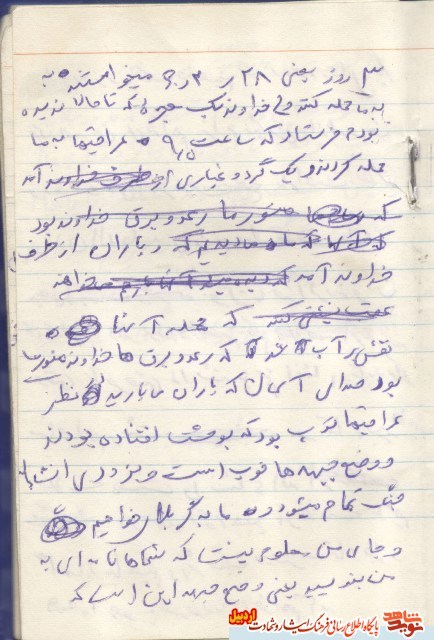 ۳ روز یعنی ۲۸ ر ۳ر۶ میخواستند به
به ما حمله کنند ولی خداوند یک معجزه که تا حالا ندیده
بودم فرستاد که ساعت ۹٫۵ عراقیها به ما
حمله کردند و یک گرد و غباری از طرف خداوند آمد
که منور ما رعد و برق خداوند بود
که باران از طرف
خداوند آمد که
که حمله آنها
نقش بر آب شد که رعد و برق ها خداوند منور ما
بود صدای آسمان که باران ما بارید نظر
عراقیها توپ بود که بوحشت افتاده بودند
و وضع جبهه ها خوب است و بزودی انشاء
جنگ تمام میشود و ما به کربلا خواهیم
و جای من معلوم نیست که شماها نامه ای به
من بنویسید یعنی وضع جبهه این است که
نوید شاهد
پایگاه اطلاع رسانی فرهنگ ایثار و شهادت اردبیل